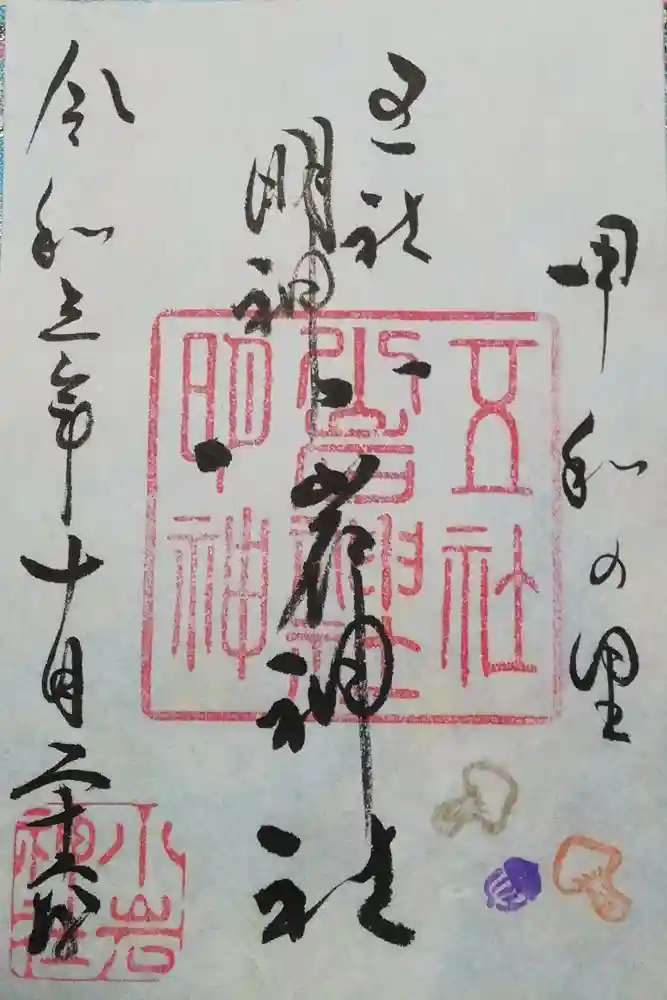 甲和の里
五社
明神
小岩神社
令和五年十月二十六日
五社
小岩神社
明神
小岩
神社